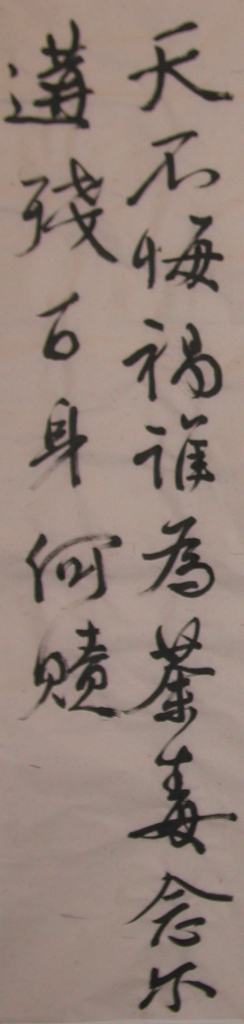 天不悔禍誰為荼毒念尔
遘殘百身何贖